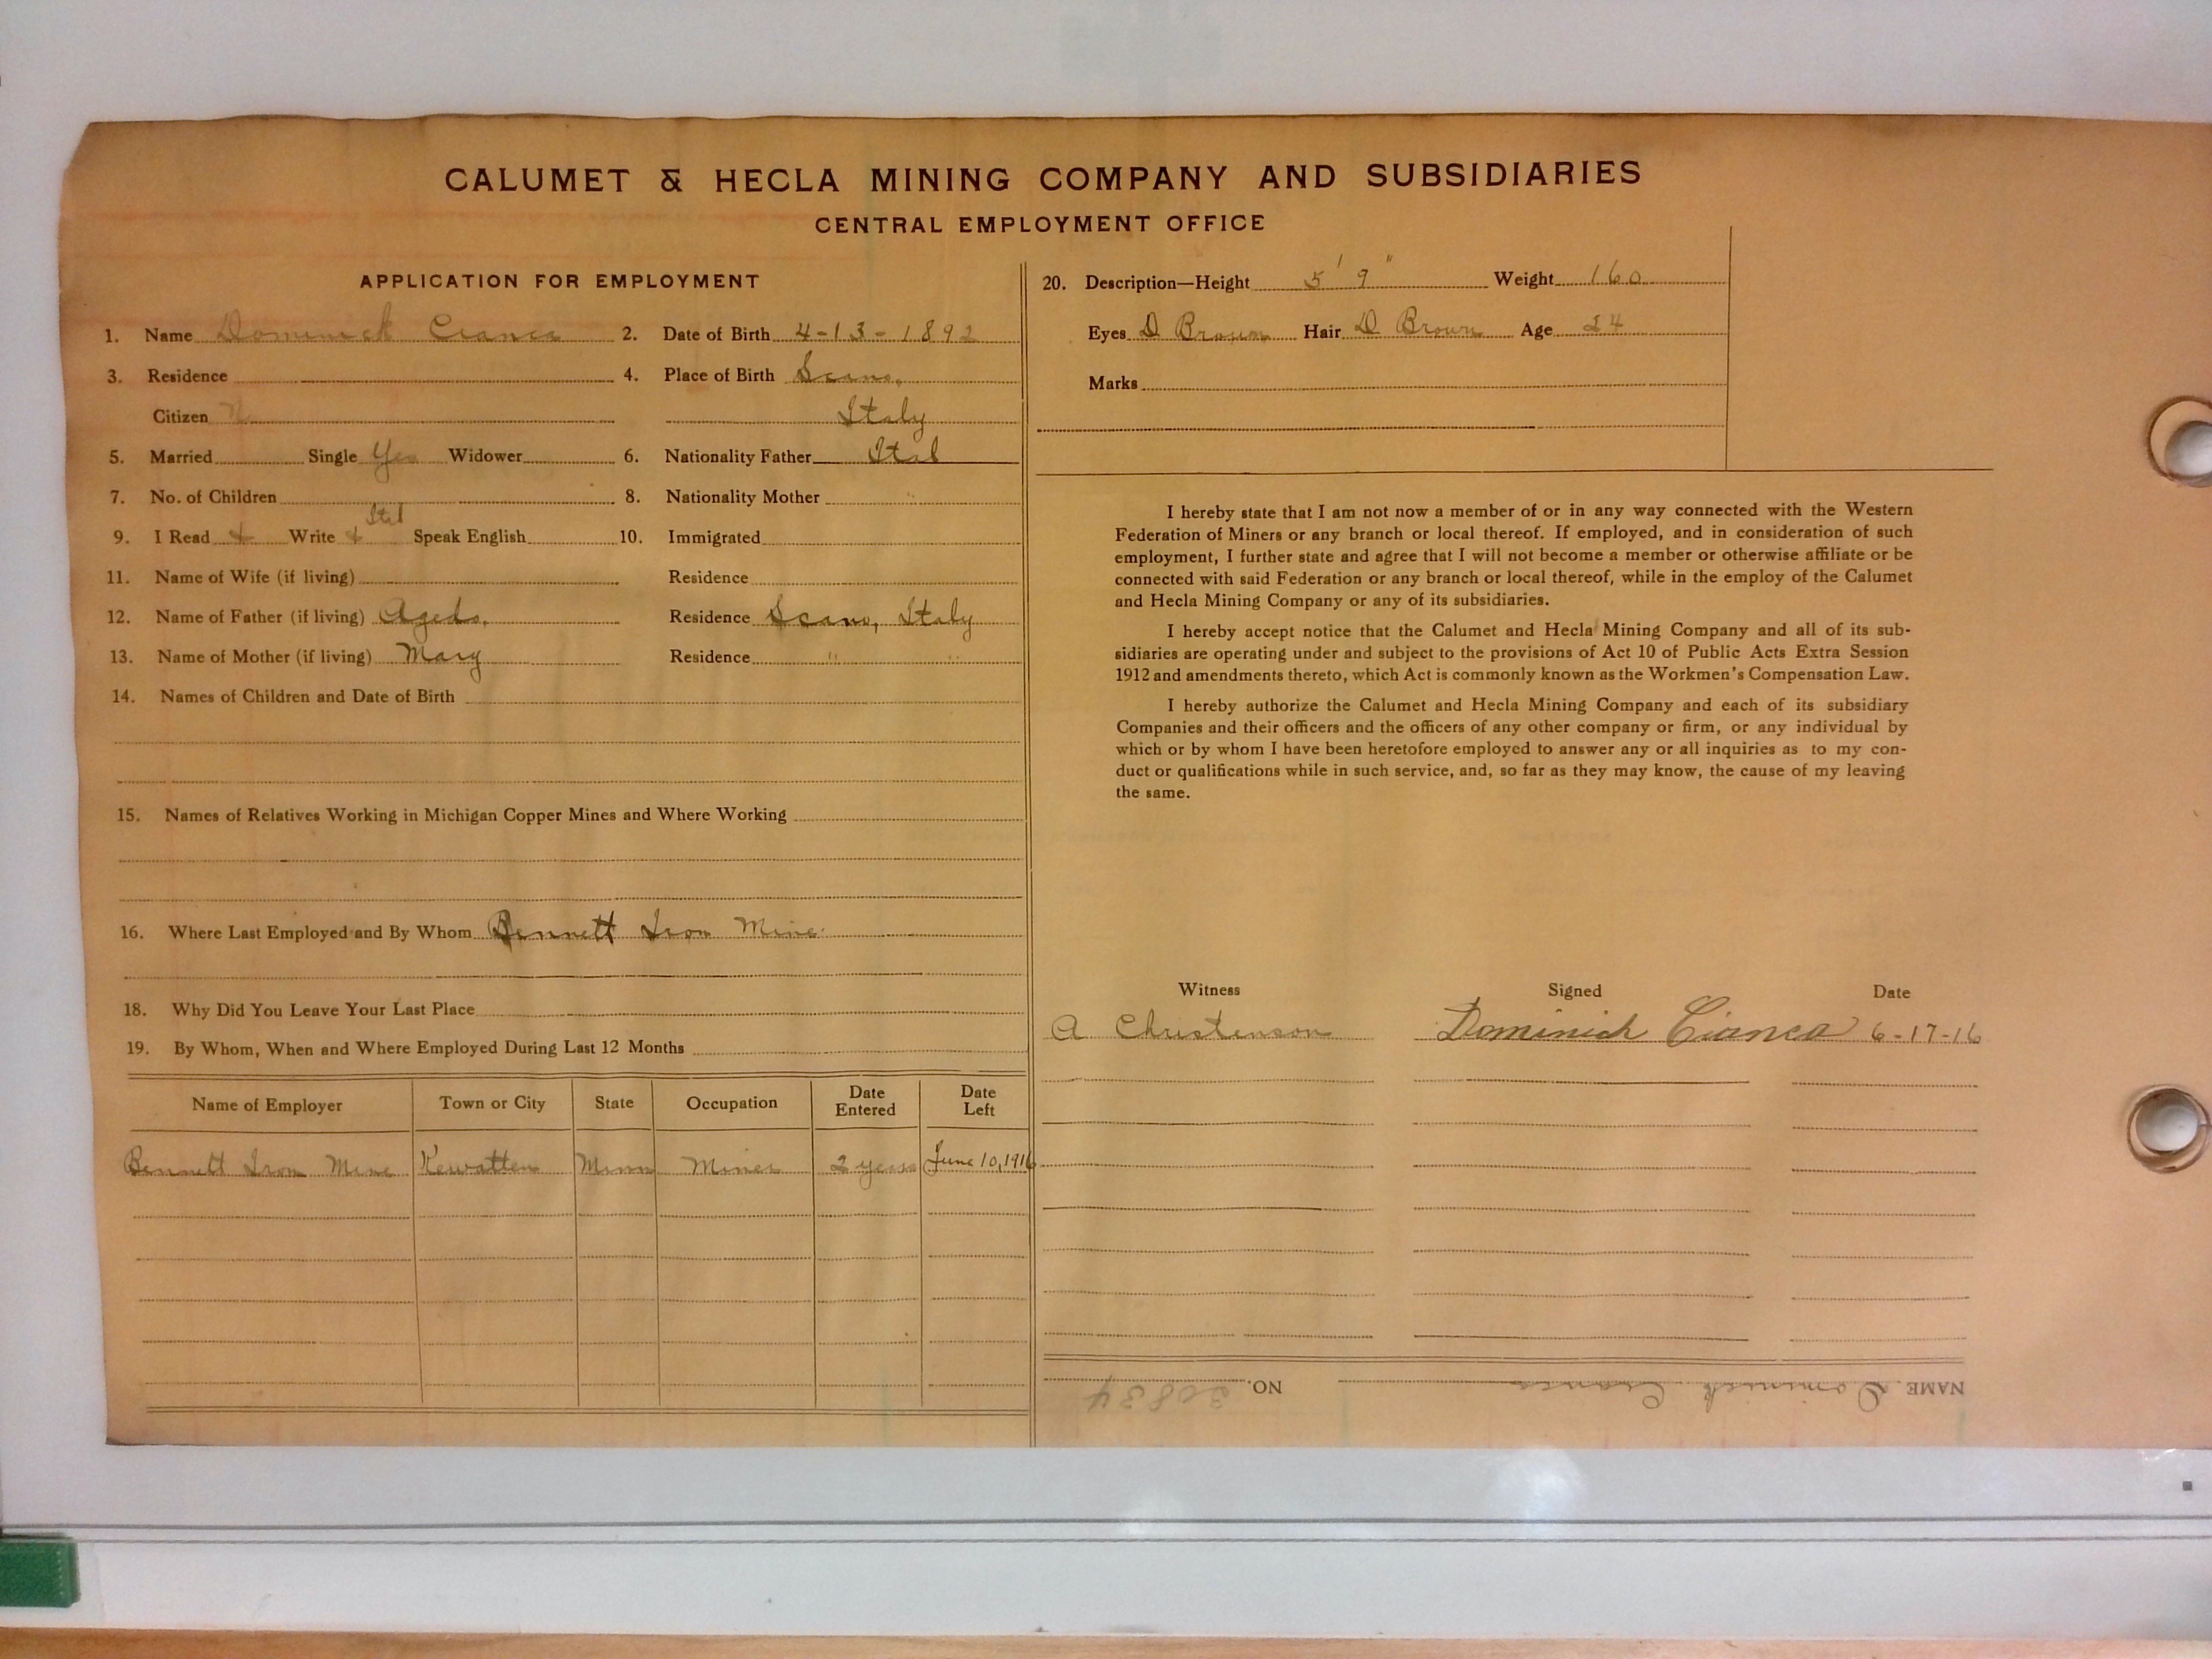 CALUMET & HECLA MINING COMPANY AND SUBSIDIARIES
CENTRAL EMPLOYMENT OFFICE
APPLICATION FOR EMPLOYMENT
1. Name Dominick Cianca 2. Date of Birth 4-13-1892
3. Residence 4. Place of Birth Scano,
Citizen No Italy
5. Married Single Yes Widower 6. Nationality Father Ital
7. No. of Children 8. Nationality Mother "
Ital
9. I Read + Write + Speak English 10. Immigrated
11. Name of Wife (if living) Residence
12. Name of Father (if living) Residence Scano, Italy
13. Name of Mother (if living) Mary Residence " "
14. Names of Children and Date of Birth
15. Names of Relatives Working in Michigan Copper Mines and Where Working
16. Where Last Employed and By Whom Bennett Iron Mine
18. Why Did You Leave Your Last Place
19. By Whom, When and Where Employed During Last 12 Months
Name of Employer Town or City State Occupation Date Entered Date Left
Bennett Iron Mine Kewatten Minn Miner 2 years June 10, 1916
20. Description—Height 5' 9" Weight 160
Eyes D Brown Hair D Brown Age 24
Marks
I hereby state that I am not now a member of or in any way connected with the Western
Federation of Miners or any branch or local thereof. If employed, and in consideration of such
employment, I further state and agree that I will not become a member or otherwise affiliate or be
connected with said Federation or any branch or local thereof, while in the employ of the Calumet
and Hecla Mining Company or any of its subsidiaries.
I hereby accept notice that the Calumet and Hecla Mining Company and all of its sub-
sidiaries are operating under and subject to the provisions of Act 10 of Public Acts Extra Session
1912 and amendments thereto, which Act is commonly known as the Workmen's Compensation Law.
I hereby authorize the Calumet and Hecla Mining Company and each of its subsidiary
Companies and their officers and the officers of any other company or firm, or any individual by
which or by whom I have been heretofore employed to answer any or all inquiries as to my con-
duct or qualifications while in such service, and, so far as they may know, the cause of my leaving
the same.
Witness Signed Date
A Christenson Dominick Cianca 6-17-16
NAME Dominick Cianca NO. 30834